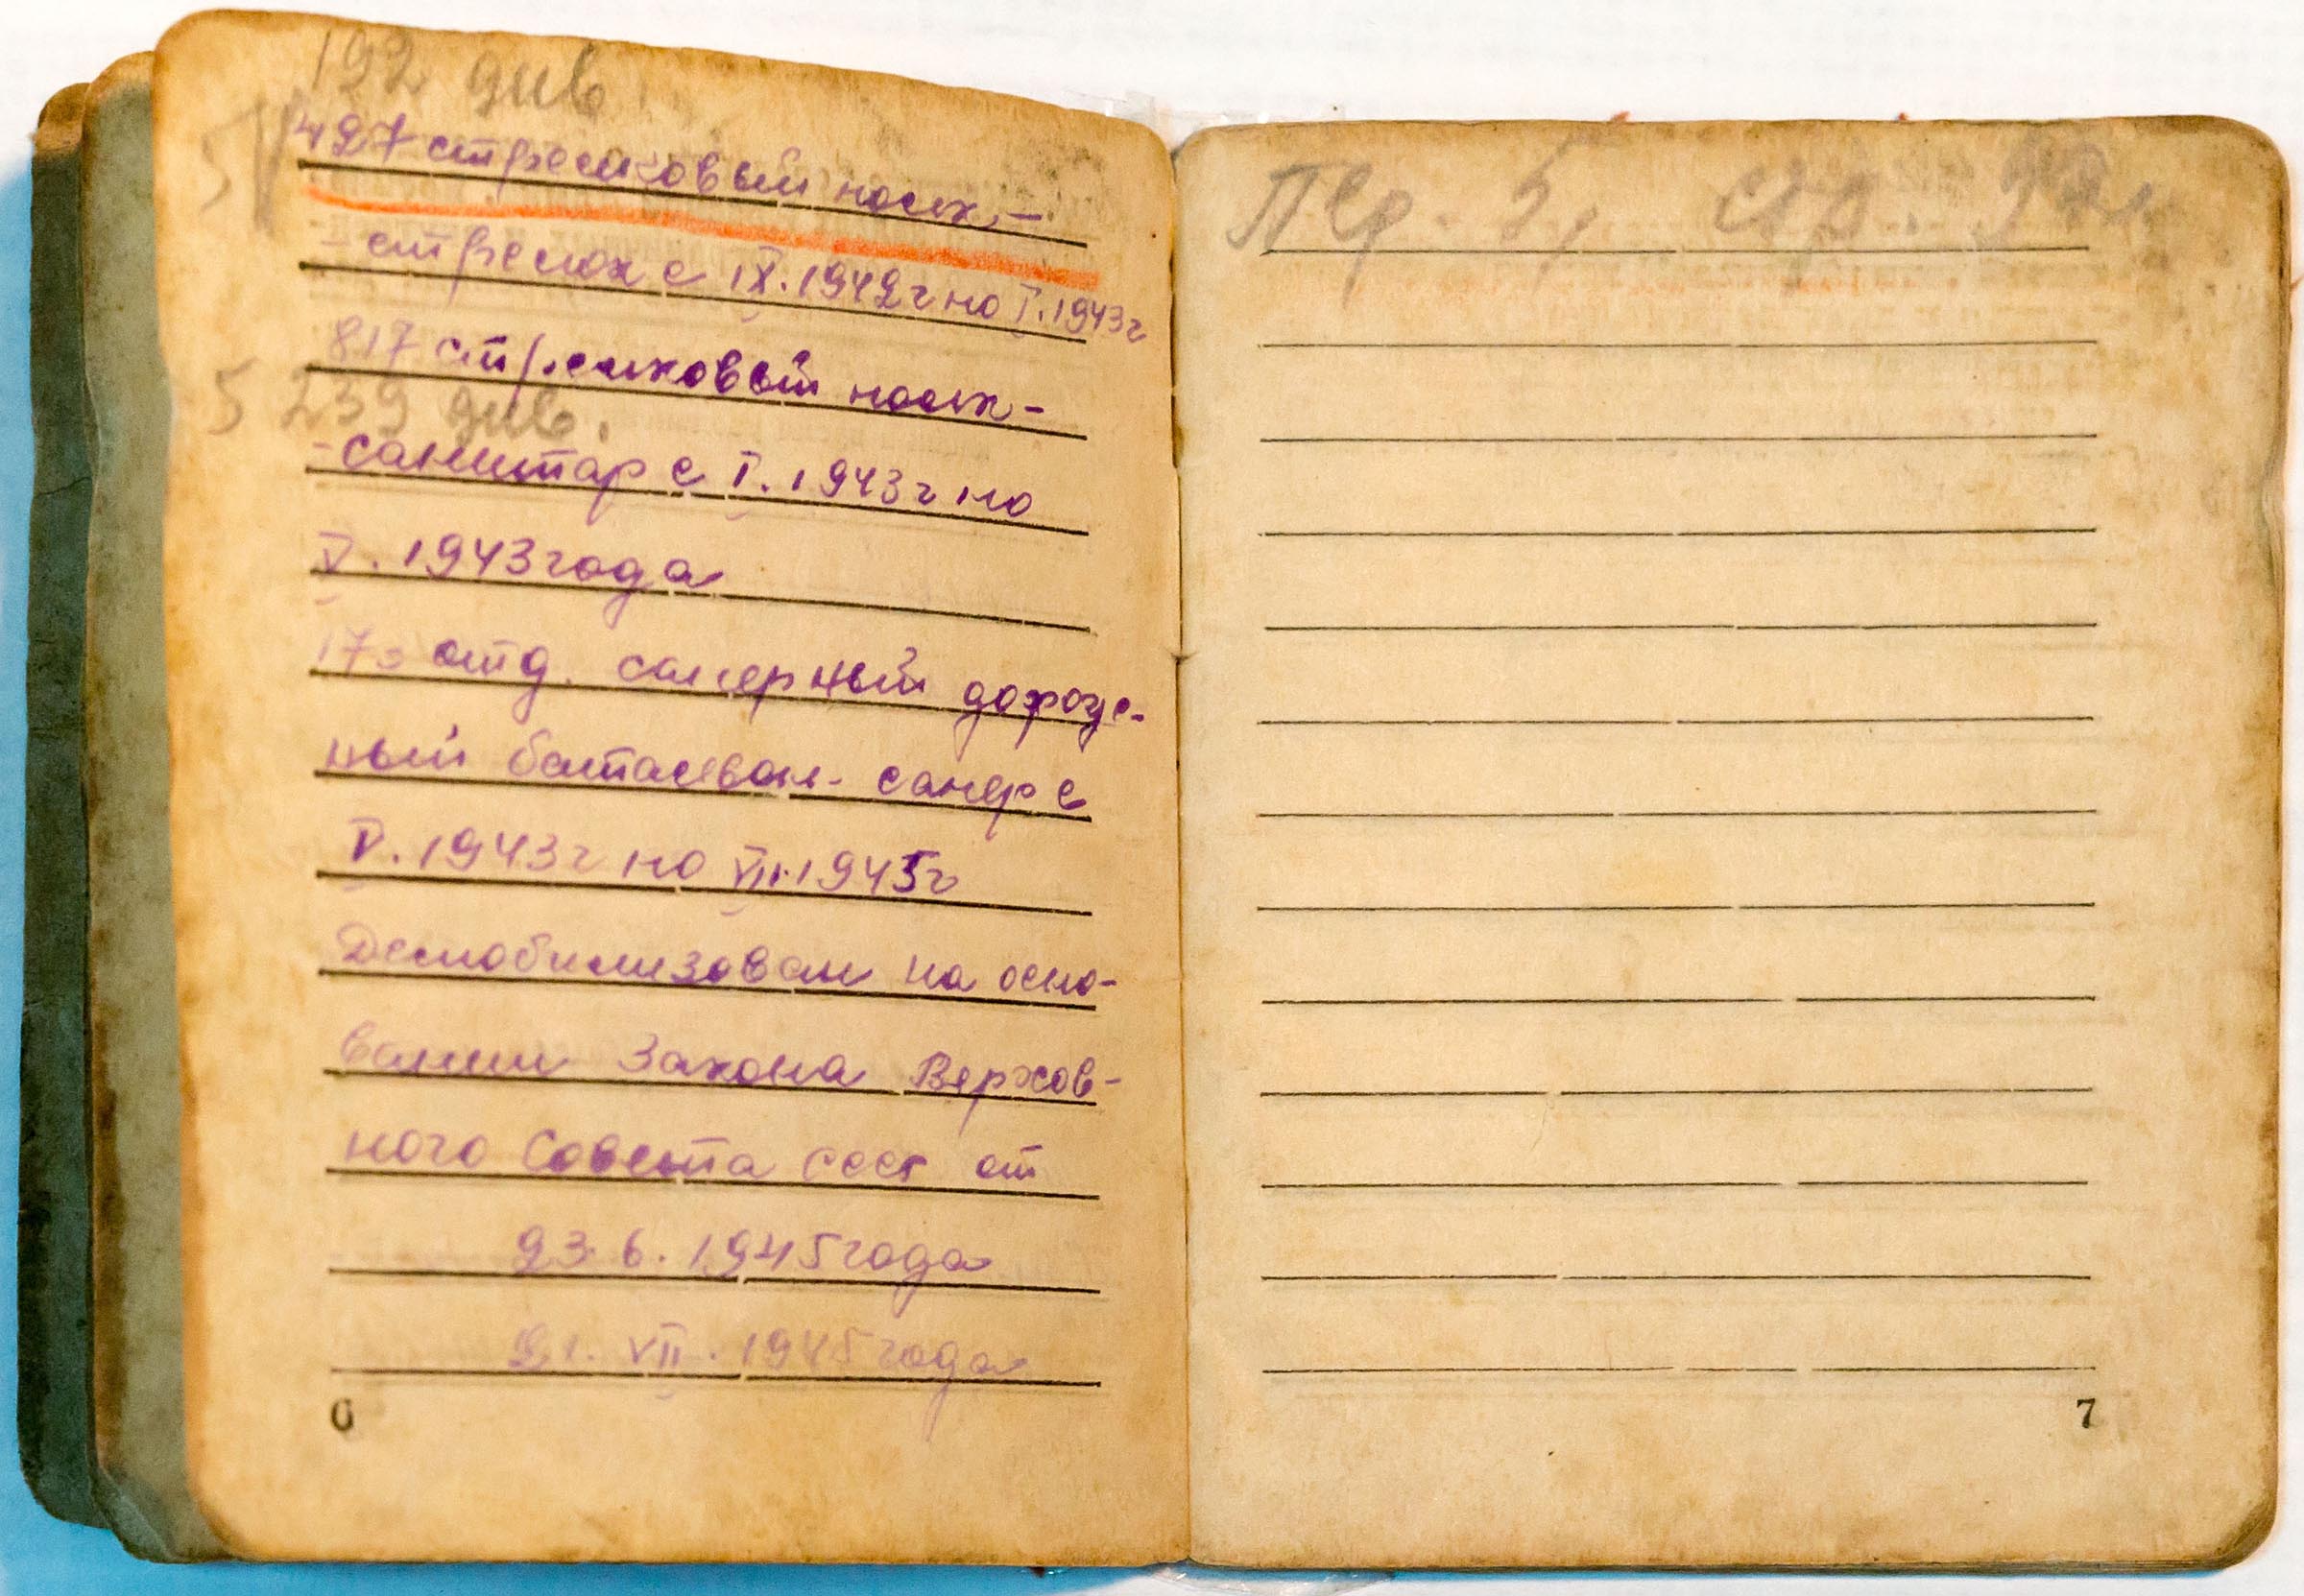 192 див.
427 стрелковый полк -
- стрелок с IX.1942г по I.1943г
817 стрелковый полк -
5 239 див.
- санитар с I.1943г по
V.1943 года
отд. саперный дорож-
ный батальон - сапер с
V.1943г по VII.1945г
Демобилизован на осно-
вании Закона Верхов-
ного Совета СССР от
23.6.1945 года
21.VII.1945 года
6
Пер. 5, стр.
7